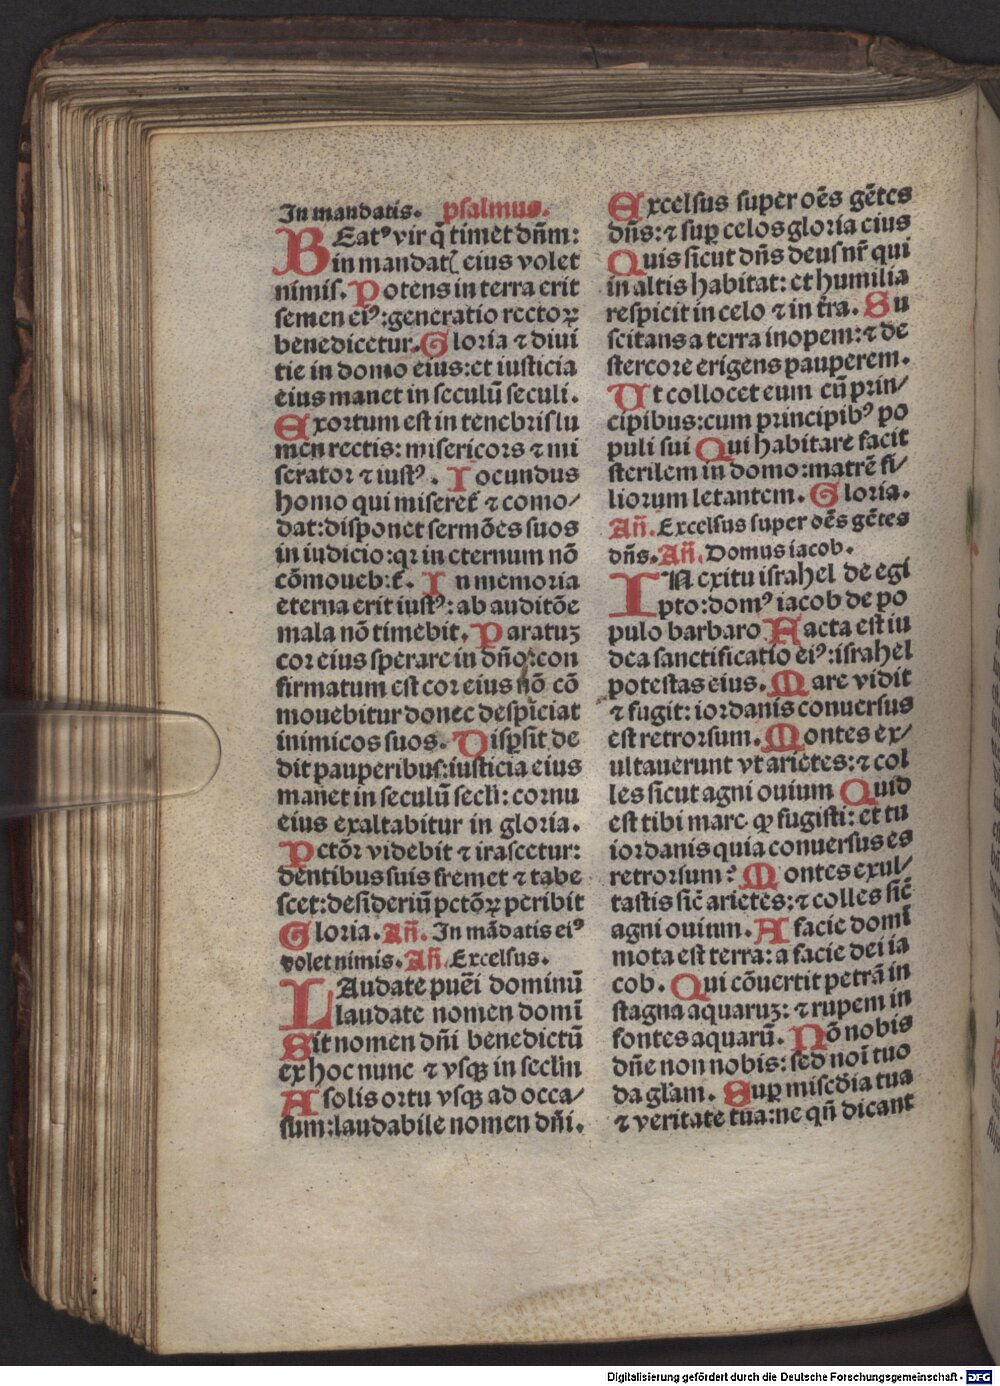 In mandatis. psalmus.
BEatꝰ vir q̄ timet dn̄m:
in mandatꝭ eius volet
nimis. Potens in terra erit
semen eiꝰ: generatio rectoꝝ
benedicetur. Gloria ⁊ diui
tie in domo eius: et iusticia
eius manet in seculū seculi.
Exortum est in tenebris lu
men rectis: misericors ⁊ mi
serator ⁊ iustꝰ. Iocundus
homo qui miseret̄ ⁊ como/
dat: disponet sermōes suos
in iudicio: qꝛ in eternum nō
cōmoueb:t̄. In memoria
eterna erit iustꝰ: ab auditōe
mala nō timebit. Paratuꝫ
cor eius sperare in dn̄o: con
firmatum est cor eius nō cō
mouebitur donec despiciat
inimicos suos. Disꝑsit de
dit pauperibus: iusticia eius
manet in seculū secli: cornu
eius exaltabitur in gloria.
Pctōr videbit ⁊ irascetur:
dentibus suis fremet ⁊ tabe
scet: desideriū pctōꝝ peribit
Gloria. An̄. In mādatis eiꝰ
volet nimis. An̄. Excelsus.
LAudate puēi dominū
laudate nomen domī
Sit nomen dn̄i benedictū
ex hoc nunc ⁊ vsqꝫ in seclm
A solis ortu vsqꝫ ad occa/
sum: laudabile nomen dn̄i.
Excelsus super oēs gētes
dn̄s: ⁊ suꝑ celos gloria eius
Quis sicut dn̄s deus nr̄ qui
in altis habitat: et humilia
respicit in celo ⁊ in tr̄a. Su
scitans a terra inopem: ⁊ de
stercore erigens pauperem.
Ut collocet eum cū prin/
cipibus: cum principibꝰ po
puli sui Qui habitare facit
sterilem in domo: matrē fi/
liorum letantem. Gloria.
An̄. Excelsus super oēs gētes
dn̄s. An̄. Domus iacob.
IN exitu israhel de egi
pto: domꝰ iacob de po
pulo barbaro Facta est iu
dea sanctificatio eiꝰ: israhel
potestas eius. Mare vidit
⁊ fugit: iordanis conuersus
est retrorsum. Montes ex/
ultauerunt vt arietes: ⁊ col
les sicut agni ouium Quid
est tibi mare ꝙ fugisti: et tu
iordanis quia conuersus es
retrorsum? Montes exul/
tastis sic̄ arietes: ⁊ colles sic̄
agni ouium. A facie domī
mota est terra: a facie dei ia
cob. Qui cōuertit petrā in
stagna aquaruꝫ: ⁊ rupem in
fontes aquarū. Nō nobis
dn̄e non nobis: sed noī tuo
da gl̄am. Suꝑ misc̄dia tua
⁊ veritate tua: ne qn̄ dicant
Digitalisierung gefördert durch die Deutsche Forschungsgemeinschaft - DFG